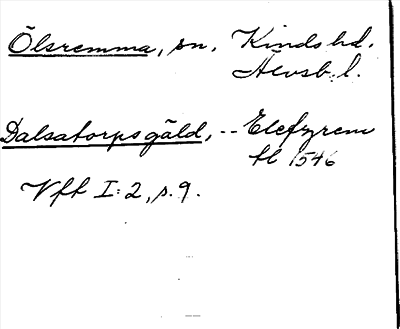 Ölsremma, sn. Kinds hd.
Älvsb. l.
Dalsatorps gäld, -- Elefzrem
hl 1546
Vfh I:2, s. 9.